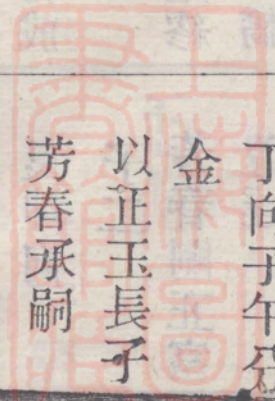 丁向子午分
金
以正玉長子
芳春承嗣